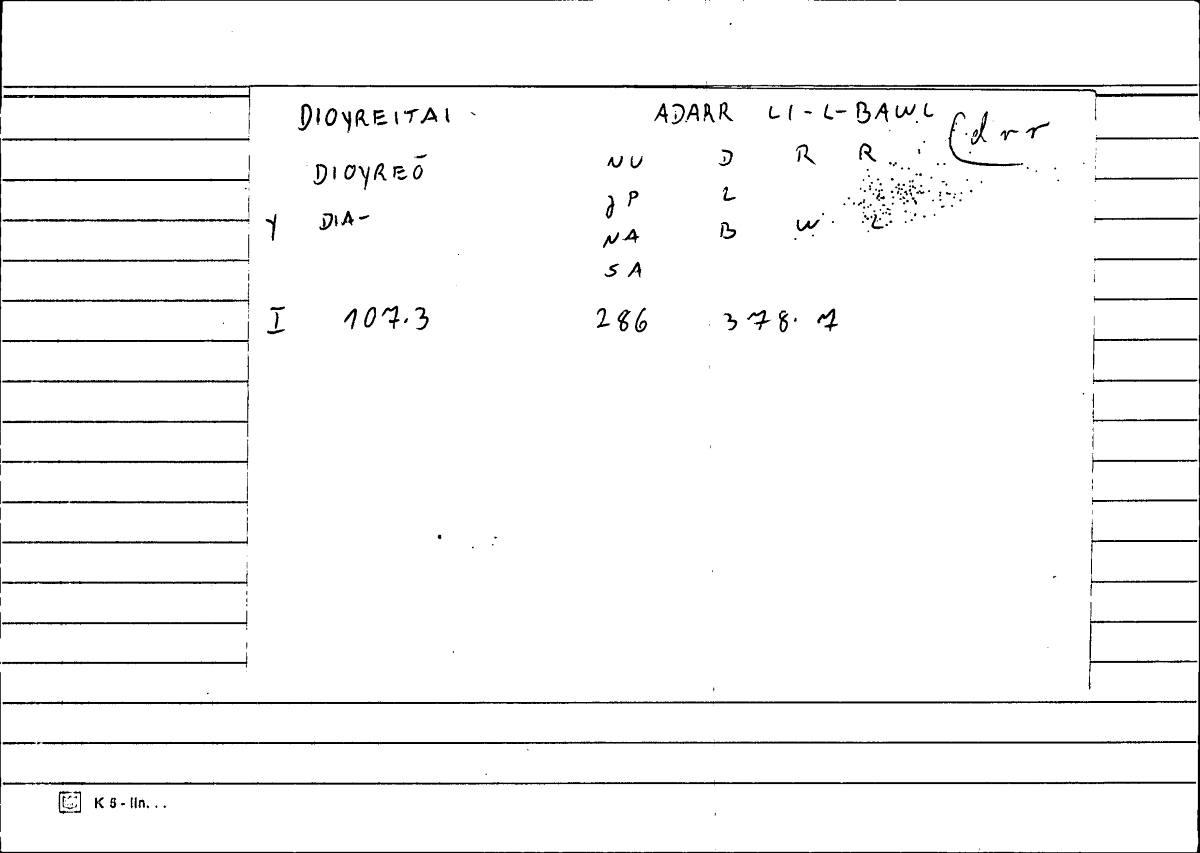 DIOYREITAI ADARR LI-L-BAWL (drr
DIOYREŌ NU D R R
JP L
Y DIA- NA B W L
SA
I 107.3 286 378.7
K 5 - lin...